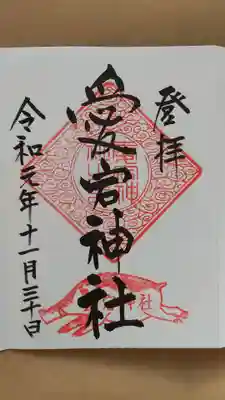 登拝
愛宕神社
令和元年十一月三十日